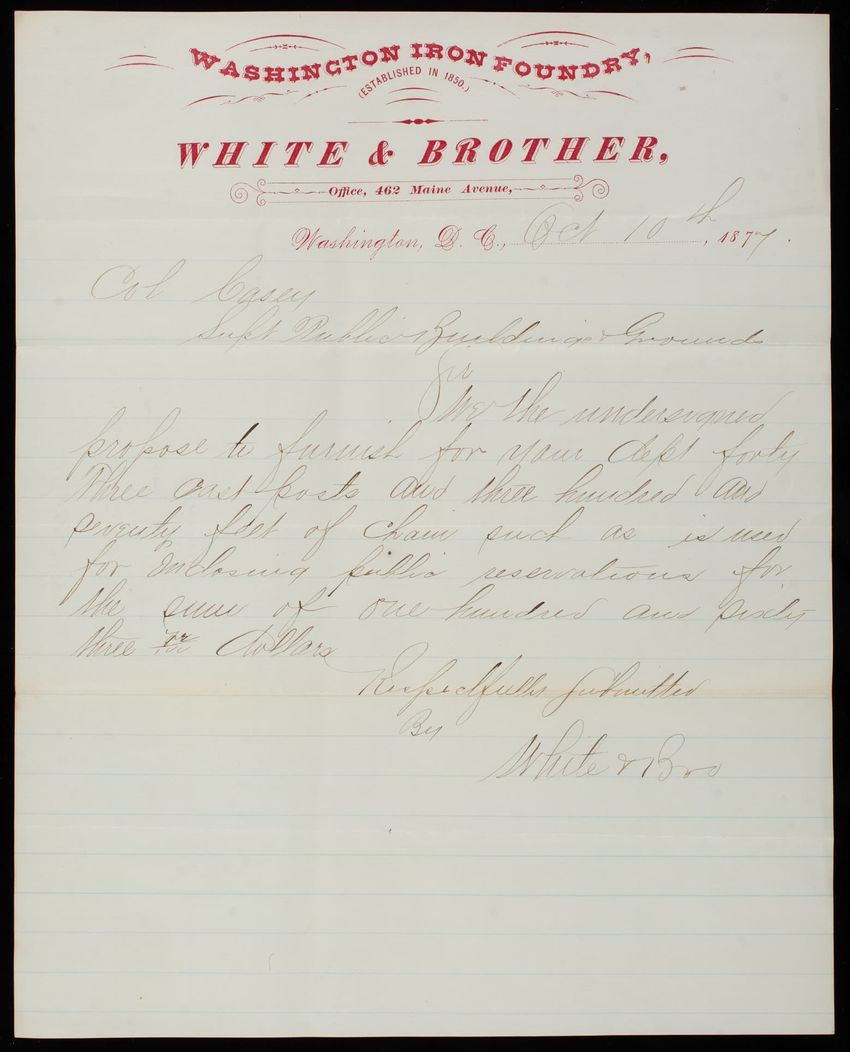 WASHINGTON IRON FOUNDRY,
(ESTABLISHED IN 1850.)
WHITE & BROTHER,
Office, 462 Maine Avenue,
Washington, D. C., Oct 10th, 1877.
Col Casey
Supt Public Buildings & Grounds
Sir
We the undersigned
propose to furnish for your dept forty
three cast posts and three hundred and
seventy feet of chain such as is used
for Inclosing public reservations for
the sum of one hundred and sixty
three dollars
Respectfully Submitted
By
White & Bro